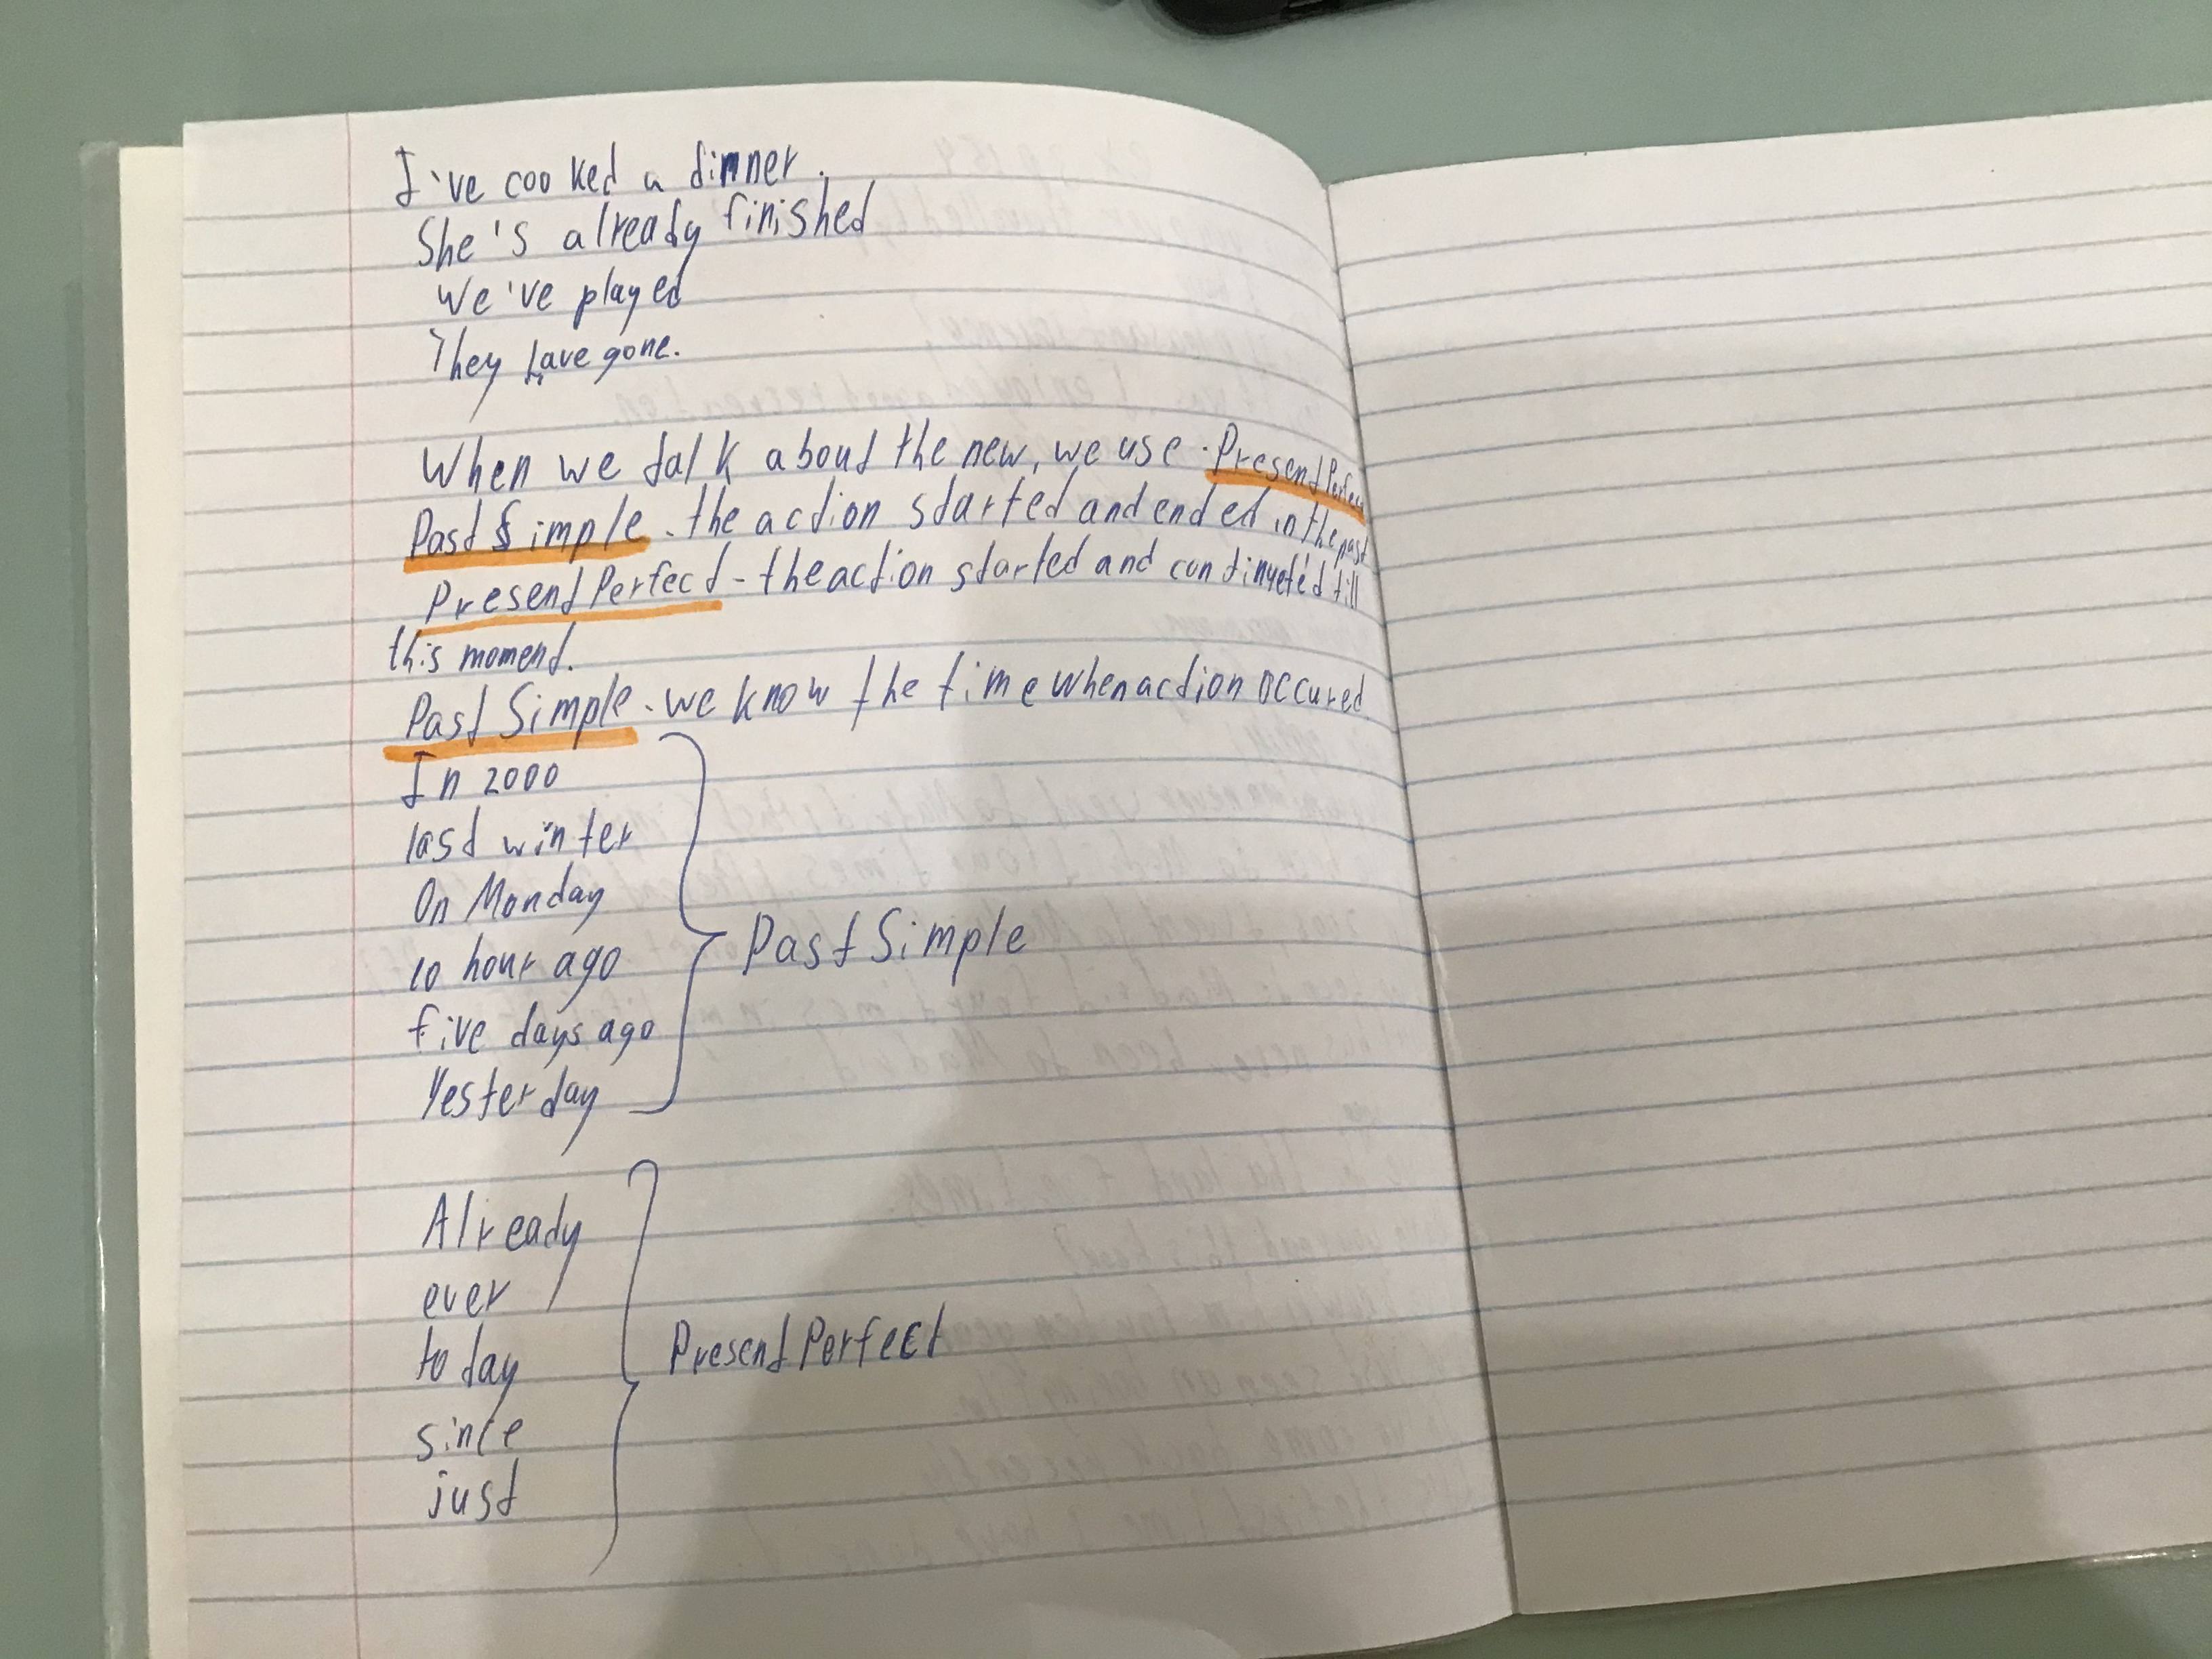 I've cooked a dinner.
She's already finished
We've played
They have gone.
When we talk about the new, we use Present Perfect
Past Simple - the action started and ended in the past
Present Perfect - the action started and continueted till
this moment.
Past Simple - we know the time when action occured.
In 2000
last winter
On Monday
10 hour ago
five days ago
Yesterday
Past Simple
Already
ever
today
since
just
Present Perfect